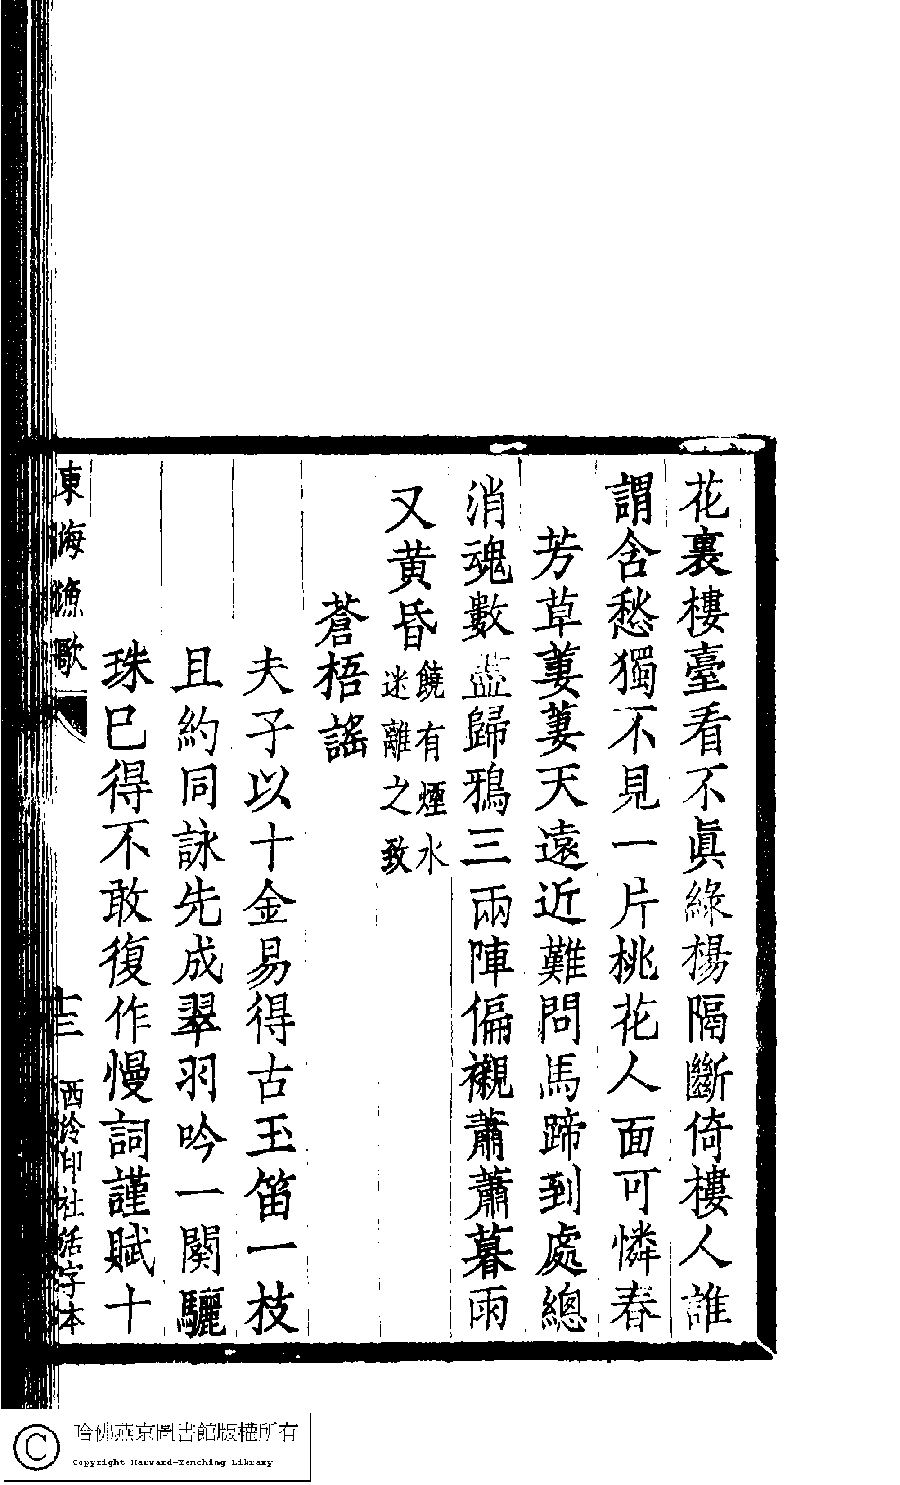 花裏樓臺看不眞綠楊隔斷倚樓人誰
謂含愁獨不見一片桃花人面可憐春
芳草萋萋天遠近難問馬蹄到處總
消魂數盡歸鴉三兩陣偏襯蕭蕭暮雨
又黃昏饒有煙水
迷離之致
蒼梧謠
夫子以十金易得古玉笛一枝
且約同詠先成翠羽吟一闋驪
珠已得不敢復作慢詞謹賦十
東海漁歌
十三
西泠印社活字本
哈佛燕京圖書館版權所有
Copyright Harvard-Yenching Library